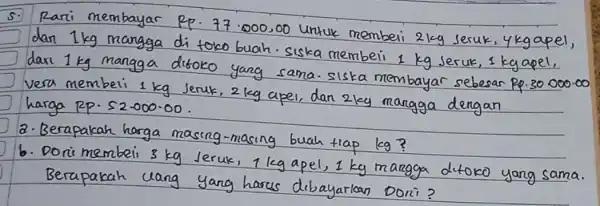 5. Rani membayar Rp. 77.000,00 untuk membeii 2kg Jeruk, 4kg apel,
dan 1kg mangga di toko buah. Siska membeii 1 kg Jeruk, 1 kg apel,
dan 1 kg mangga ditoko yang sama. Siska membayar sebesar Rp.30.000.00
Vera membeii 1 kg Jeruk, 2 kg apel, dan 2kg mangga dengan
harga Rp. 52.000.00.
a. Berapakah harga masing-masing buah tiap kg?
b. Doni membeii 3 kg Jeruk, 1 kg apel, 1 kg mangga ditoko yang sama.
Berapakah uang yang harus dibayarkan Doni?